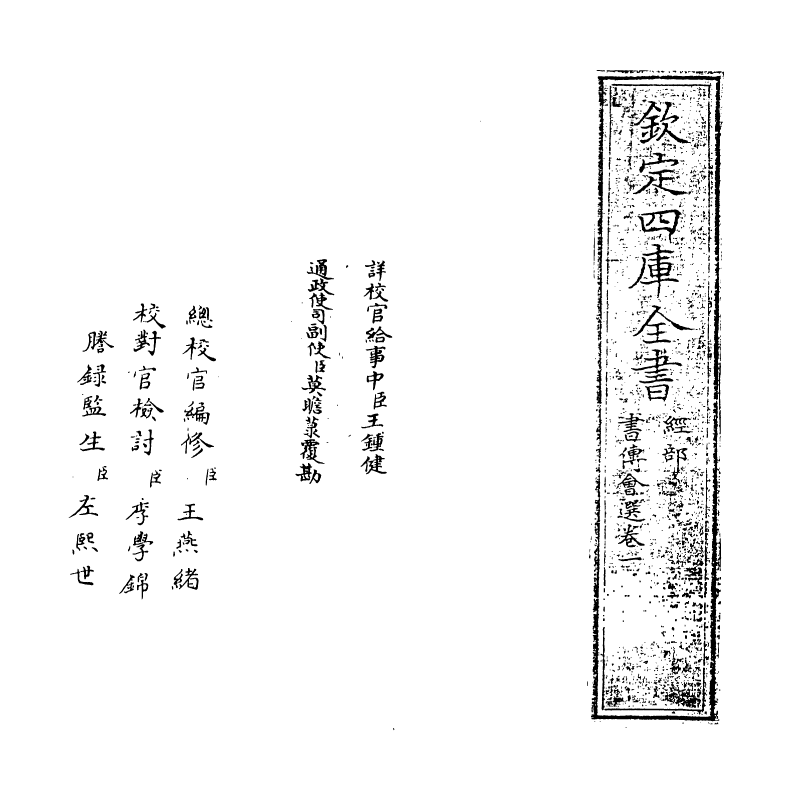 欽定四庫全書
經部
書傳會選卷一
詳校官給事中臣王鍾健
通政使司副使臣莫瞻菉覆勘
總校官編修臣王燕緒
校對官檢討臣李學錦
謄錄監生臣左熙世